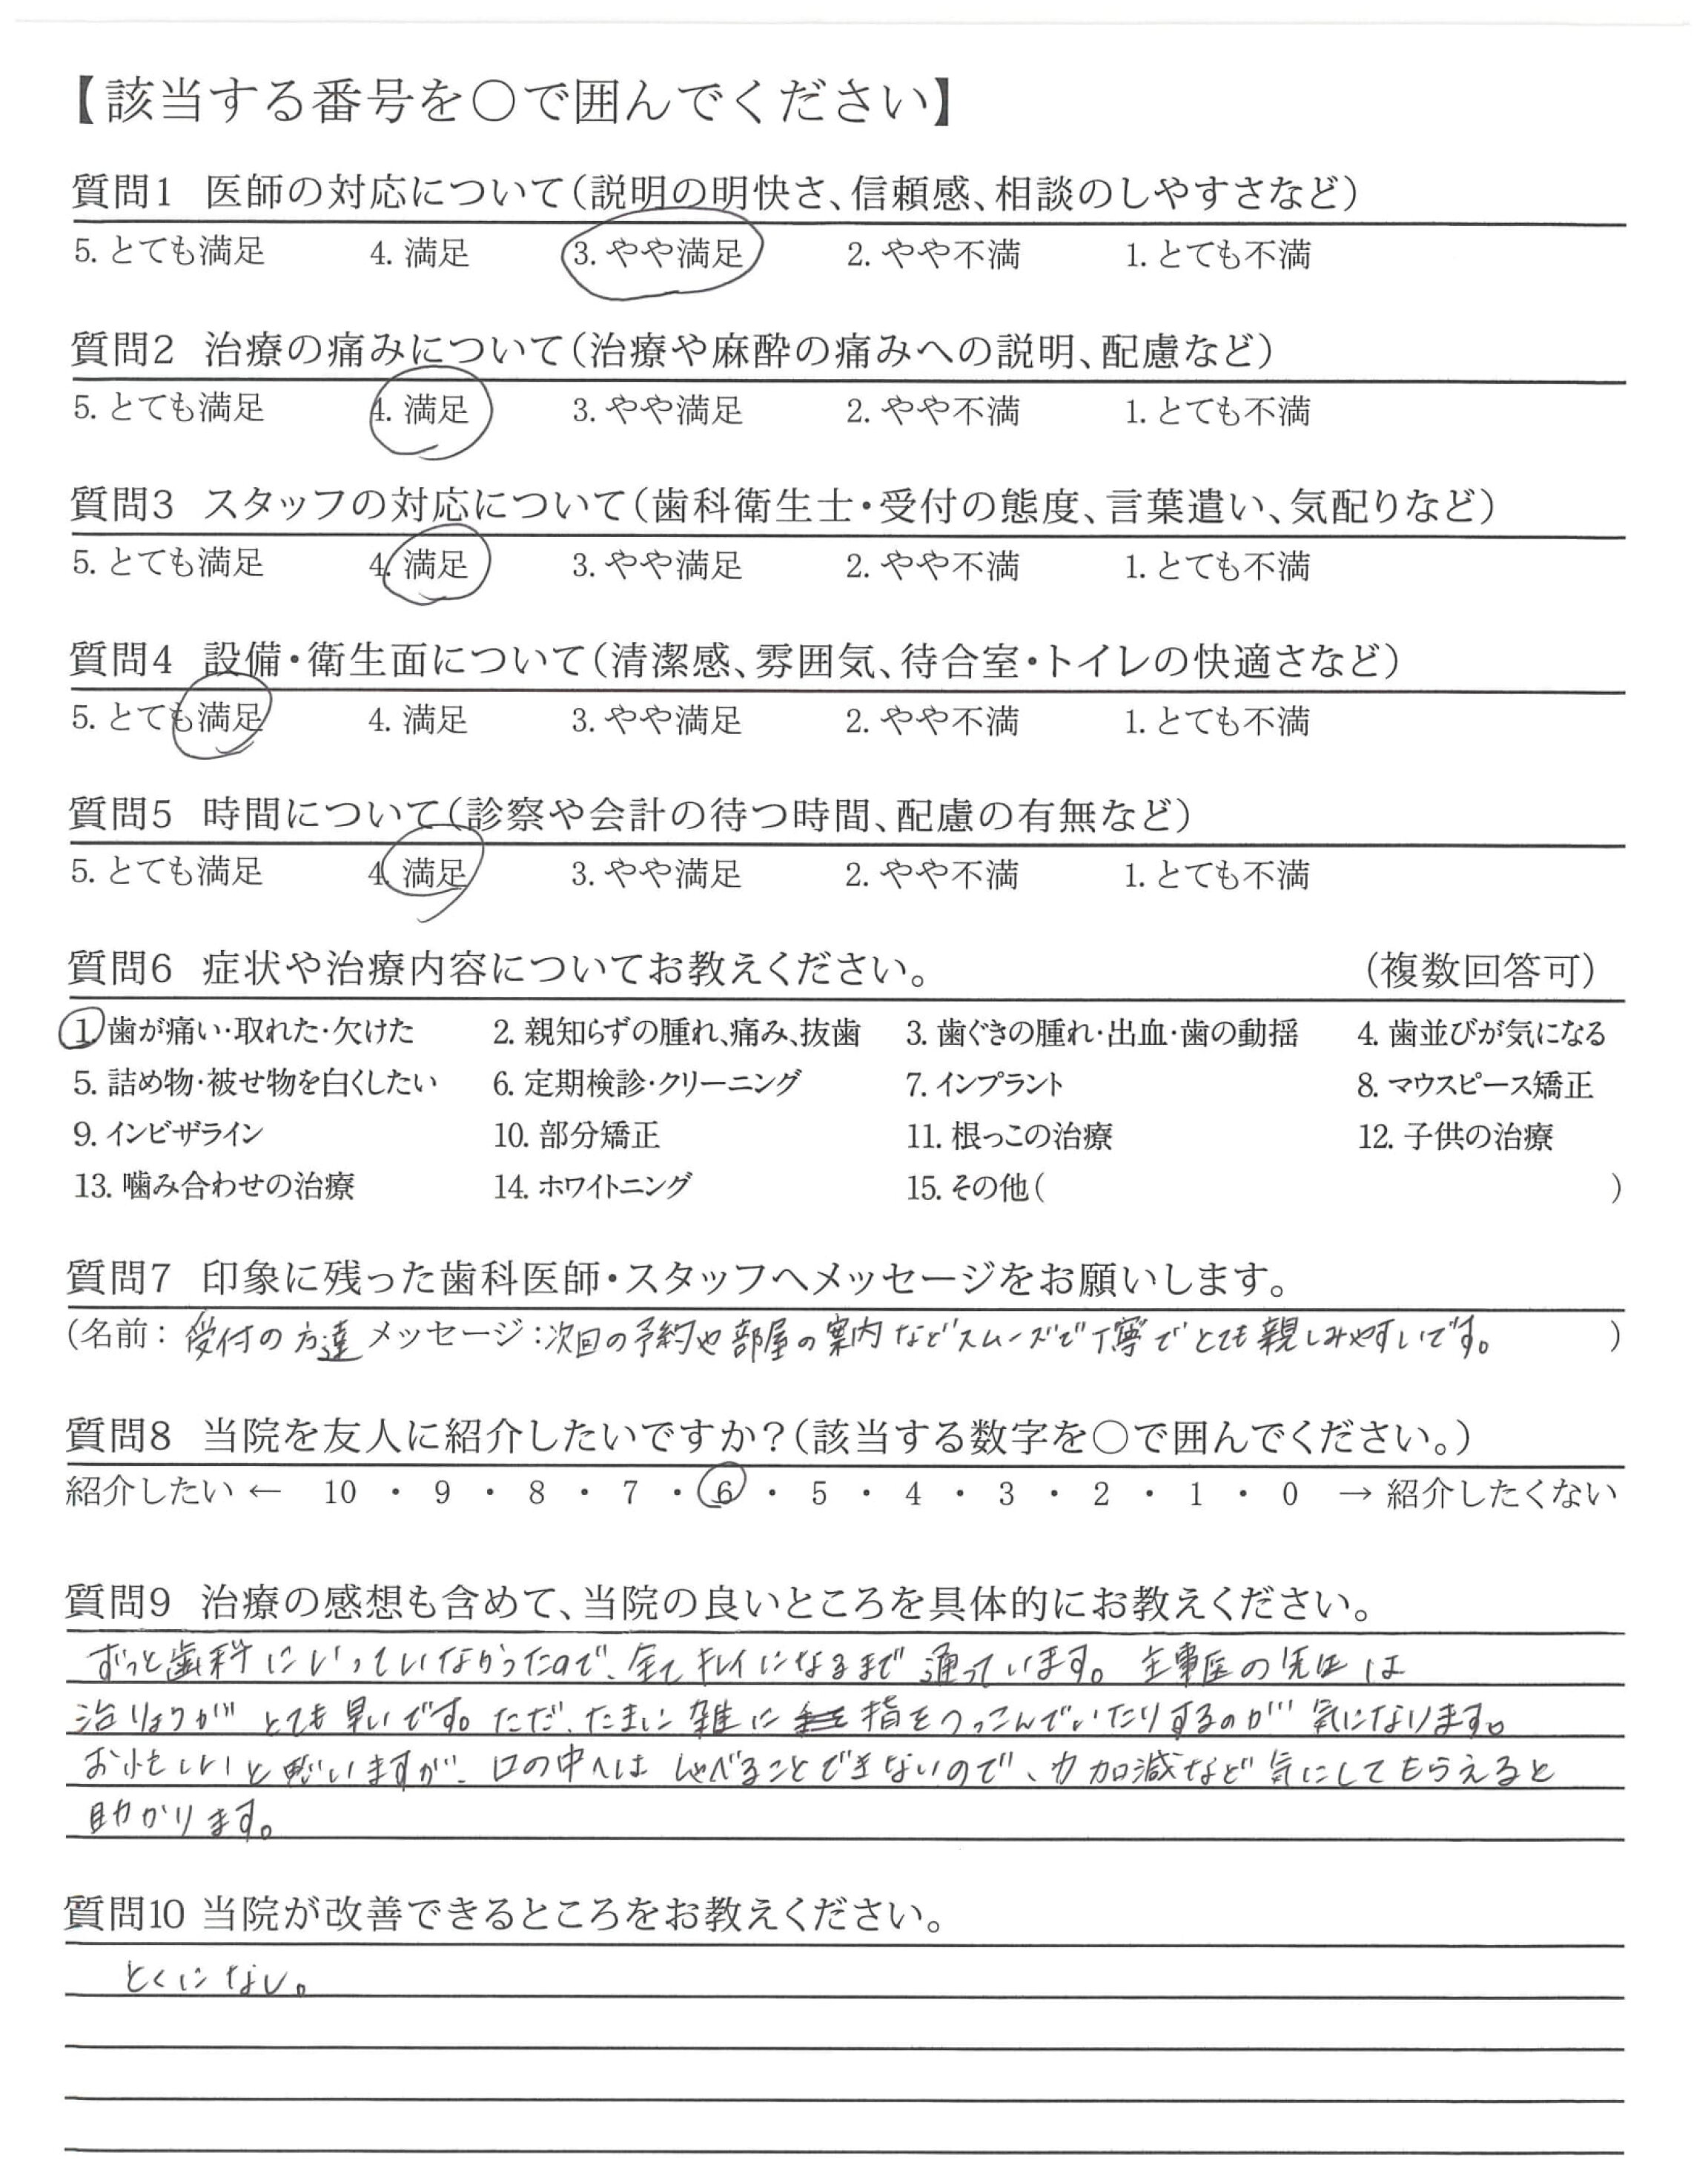 【該当する番号を○で囲んでください】
質問1 医師の対応について(説明の明快さ、信頼感、相談のしやすさなど)
5. とても満足 4. 満足 3. やや満足 2. やや不満 1. とても不満
質問2 治療の痛みについて(治療や麻酔の痛みへの説明、配慮など)
5. とても満足 4. 満足 3. やや満足 2. やや不満 1. とても不満
質問3 スタッフの対応について(歯科衛生士・受付の態度、言葉遣い、気配りなど)
5. とても満足 4. 満足 3. やや満足 2. やや不満 1. とても不満
質問4 設備・衛生面について(清潔感、雰囲気、待合室・トイレの快適さなど)
5. とても満足 4. 満足 3. やや満足 2. やや不満 1. とても不満
質問5 時間について(診察や会計の待つ時間、配慮の有無など)
5. とても満足 4. 満足 3. やや満足 2. やや不満 1. とても不満
質問6 症状や治療内容についてお教えください。 (複数回答可)
1. 歯が痛い・取れた・欠けた 2. 親知らずの腫れ、痛み、抜歯 3. 歯ぐきの腫れ・出血・歯の動揺 4. 歯並びが気になる
5. 詰め物・被せ物を白くしたい 6. 定期検診・クリーニング 7. インプラント 8. マウスピース矯正
9. インビザライン 10. 部分矯正 11. 根っこの治療 12. 子供の治療
13. 噛み合わせの治療 14. ホワイトニング 15. その他( )
質問7 印象に残った歯科医師・スタッフへメッセージをお願いします。
(名前: 受付の方達 メッセージ:次回の予約や部屋の案内などスムーズで丁寧でとても親しみやすいです。 )
質問8 当院を友人に紹介したいですか?(該当する数字を○で囲んでください。)
紹介したい ← 10 ・ 9 ・ 8 ・ 7 ・ 6 ・ 5 ・ 4 ・ 3 ・ 2 ・ 1 ・ 0 → 紹介したくない
質問9 治療の感想も含めて、当院の良いところを具体的にお教えください。
ずっと歯科にいっていなかったので、全てキレイになるまで通っています。主事医の先生は
治りょうがとても早いです。ただ、たまに雑に指をつっこんでいたりするのが気になります。
お忙しいと思いますが、口の中へはしゃべることできないので、力加減など気にしてもらえると
助かります。
質問10 当院が改善できるところをお教えください。
とくになし。